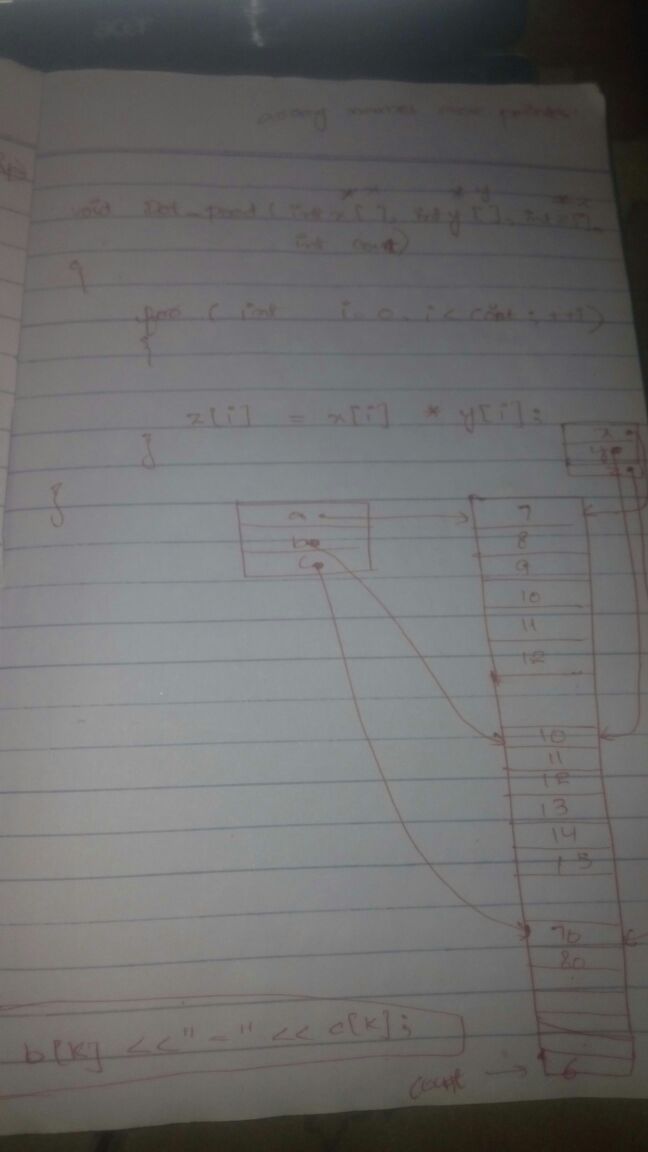 acer
array names are pointer
*x *y *z
void dot_prod ( int x[ ], int y[ ], int z[ ],
int count)
{
for ( int i = 0, i < count ; ++i)
{
z[i] = x[i] * y[i];
}
}
x
y
z
a
b
c
7
8
9
10
11
12
10
11
12
13
14
15
70
80
b[k] << " = " << c[k];
count → 6